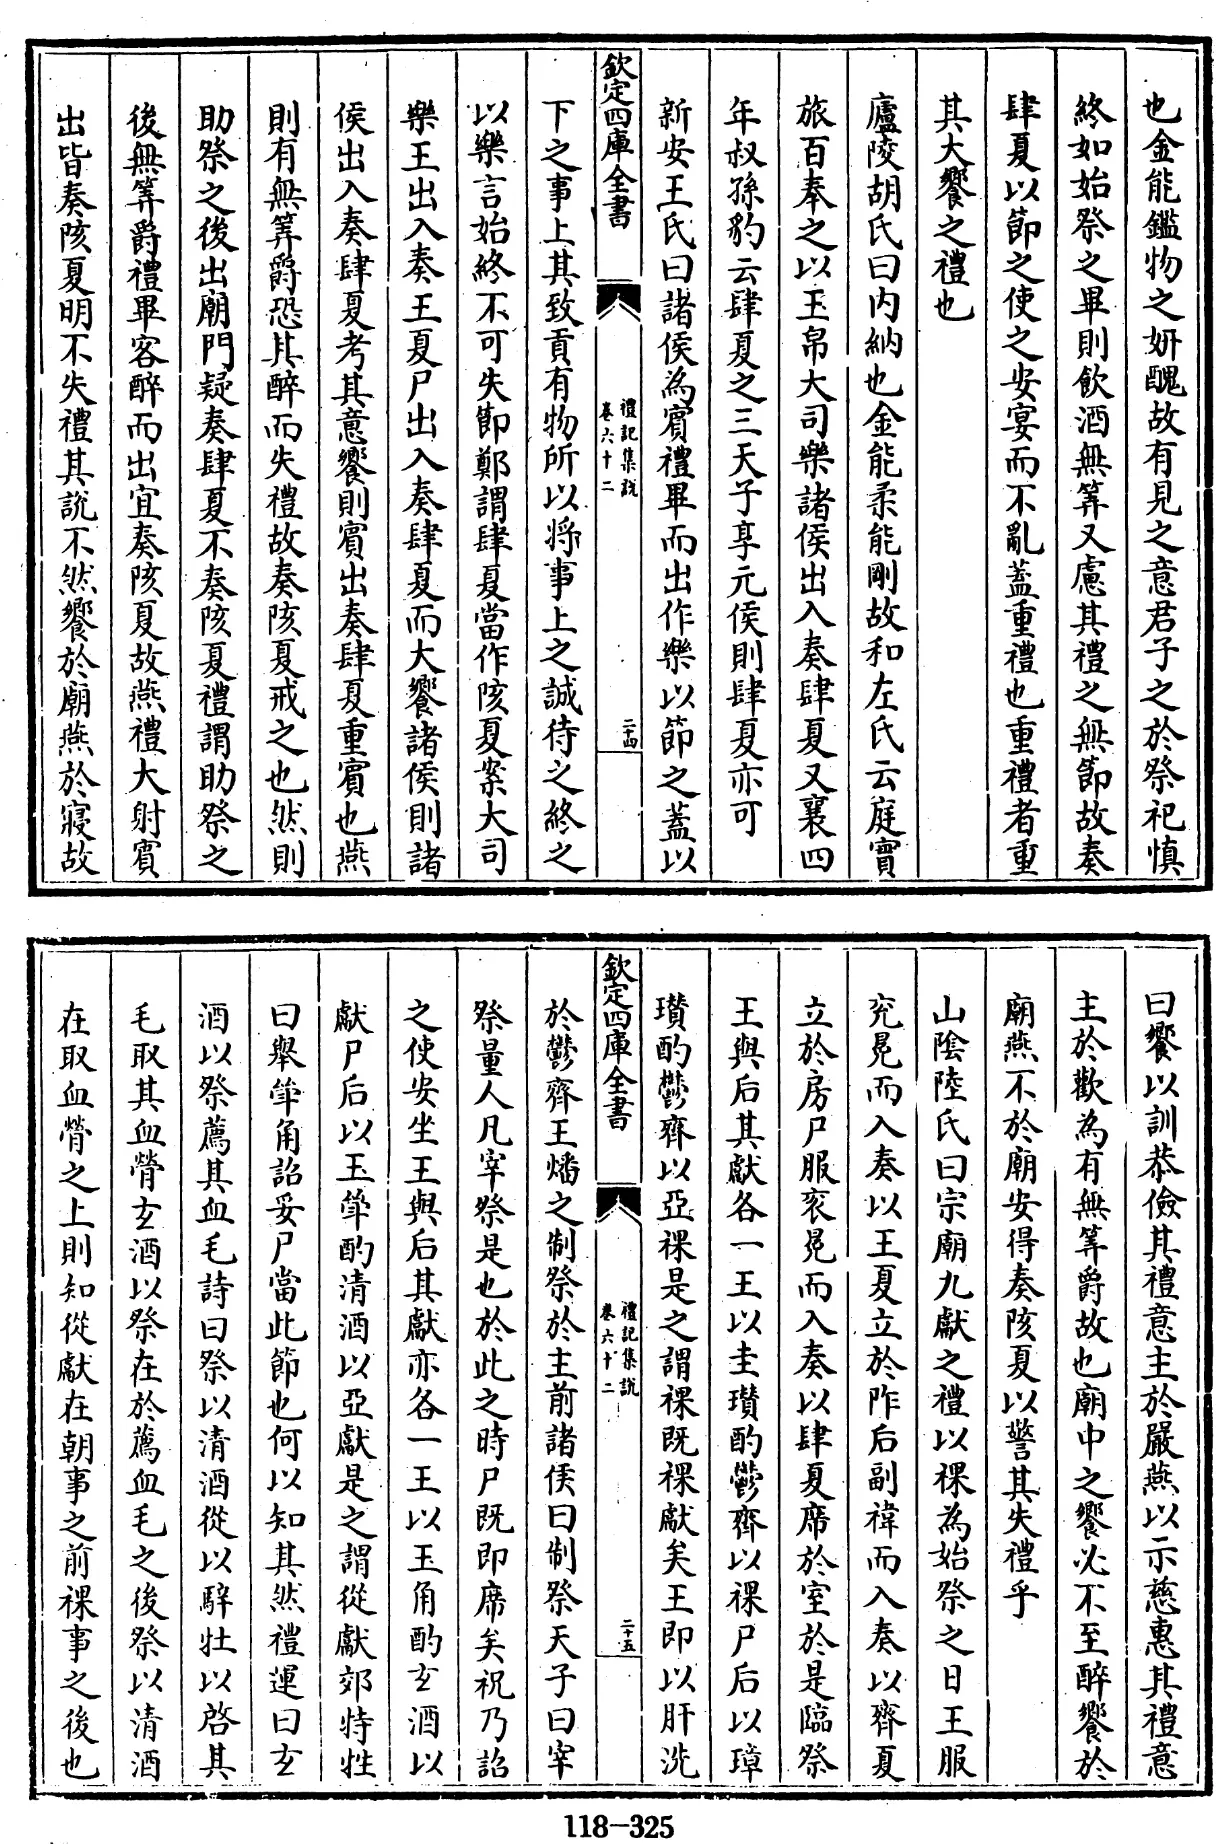 也金能鑑物之妍醜故有見之意君子之於祭祀慎
終如始祭之畢則飲酒無筭又慮其禮之無節故奏
肆夏以節之使之安宴而不亂蓋重禮也重禮者重
其大饗之禮也
廬陵胡氏曰内納也金能柔能剛故和左氏云庭實
旅百奉之以玉帛大司樂諸侯出入奏肆夏又襄四
年叔孫豹云肆夏之三天子享元侯則肆夏亦可
新安王氏曰諸侯為賓禮畢而出作樂以節之蓋以
欽定四庫全書
禮記集說
卷六十二
二十四
下之事上其致貢有物所以將事上之誠待之終之
以樂言始終不可失節鄭謂肆夏當作陔夏案大司
樂王出入奏王夏尸出入奏肆夏而大饗諸侯則諸
侯出入奏肆夏考其意饗則賓出奏肆夏重賓也燕
則有無筭爵恐其醉而失禮故奏陔夏戒之也然則
助祭之後出廟門疑奏肆夏不奏陔夏禮謂助祭之
後無筭爵禮畢客醉而出宜奏陔夏故燕禮大射賓
出皆奏陔夏明不失禮其說不然饗於廟燕於寢故
曰饗以訓恭儉其禮意主於嚴燕以示慈惠其禮意
主於歡為有無筭爵故也廟中之饗必不至醉饗於
廟燕不於廟安得奏陔夏以警其失禮乎
山陰陸氏曰宗廟九獻之禮以祼為始祭之日王服
衮冕而入奏以王夏立於阼后副褘而入奏以齊夏
立於房尸服衮冕而入奏以肆夏席於室於是臨祭
王與后其獻各一王以圭瓚酌鬱齊以祼尸后以璋
瓚酌鬱齊以亞祼是之謂祼既祼獻矣王即以肝洗
欽定四庫全書
禮記集說
卷六十二
二十五
於鬱齊王燔之制祭於主前諸侯曰制祭天子曰宰
祭量人凡宰祭是也於此之時尸既即席矣祝乃詔
之使安坐王與后其獻亦各一王以玉角酌玄酒以
獻尸后以玉斝酌清酒以亞獻是之謂從獻郊特牲
曰舉斝角詔妥尸當此節也何以知其然禮運曰玄
酒以祭薦其血毛詩曰祭以清酒從以騂牡以啓其
毛取其血膋玄酒以祭在於薦血毛之後祭以清酒
在取血膋之上則知從獻在朝事之前祼事之後也
118-325